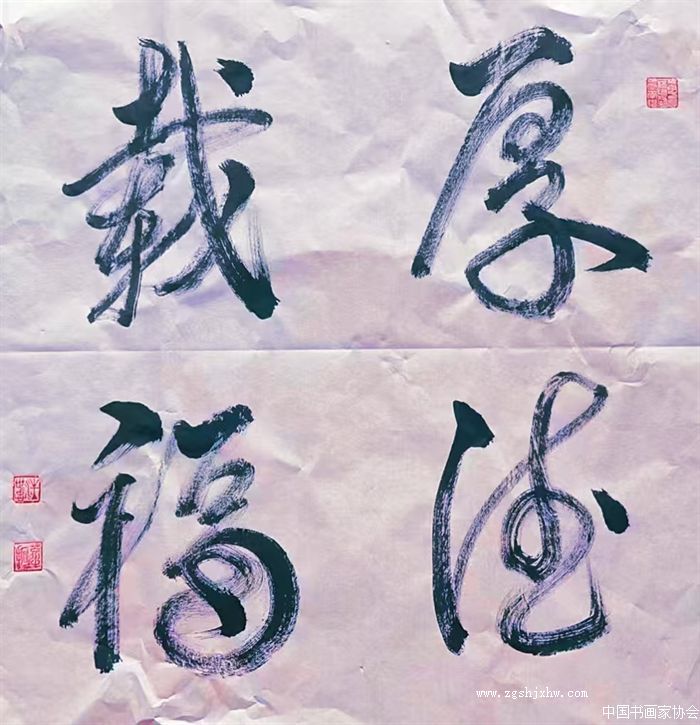 厚德
載福
www.zgshjxhw.com
中国书画家协会